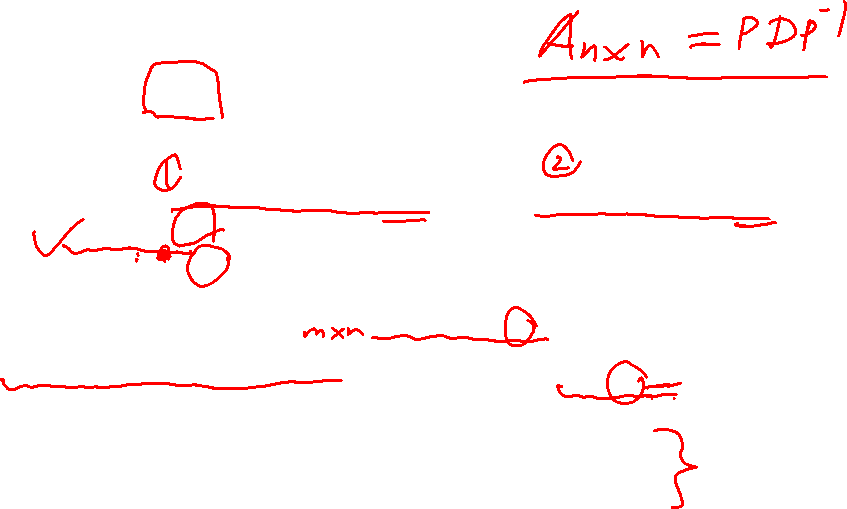 Anxn = PDP⁻¹
① ②
mxn